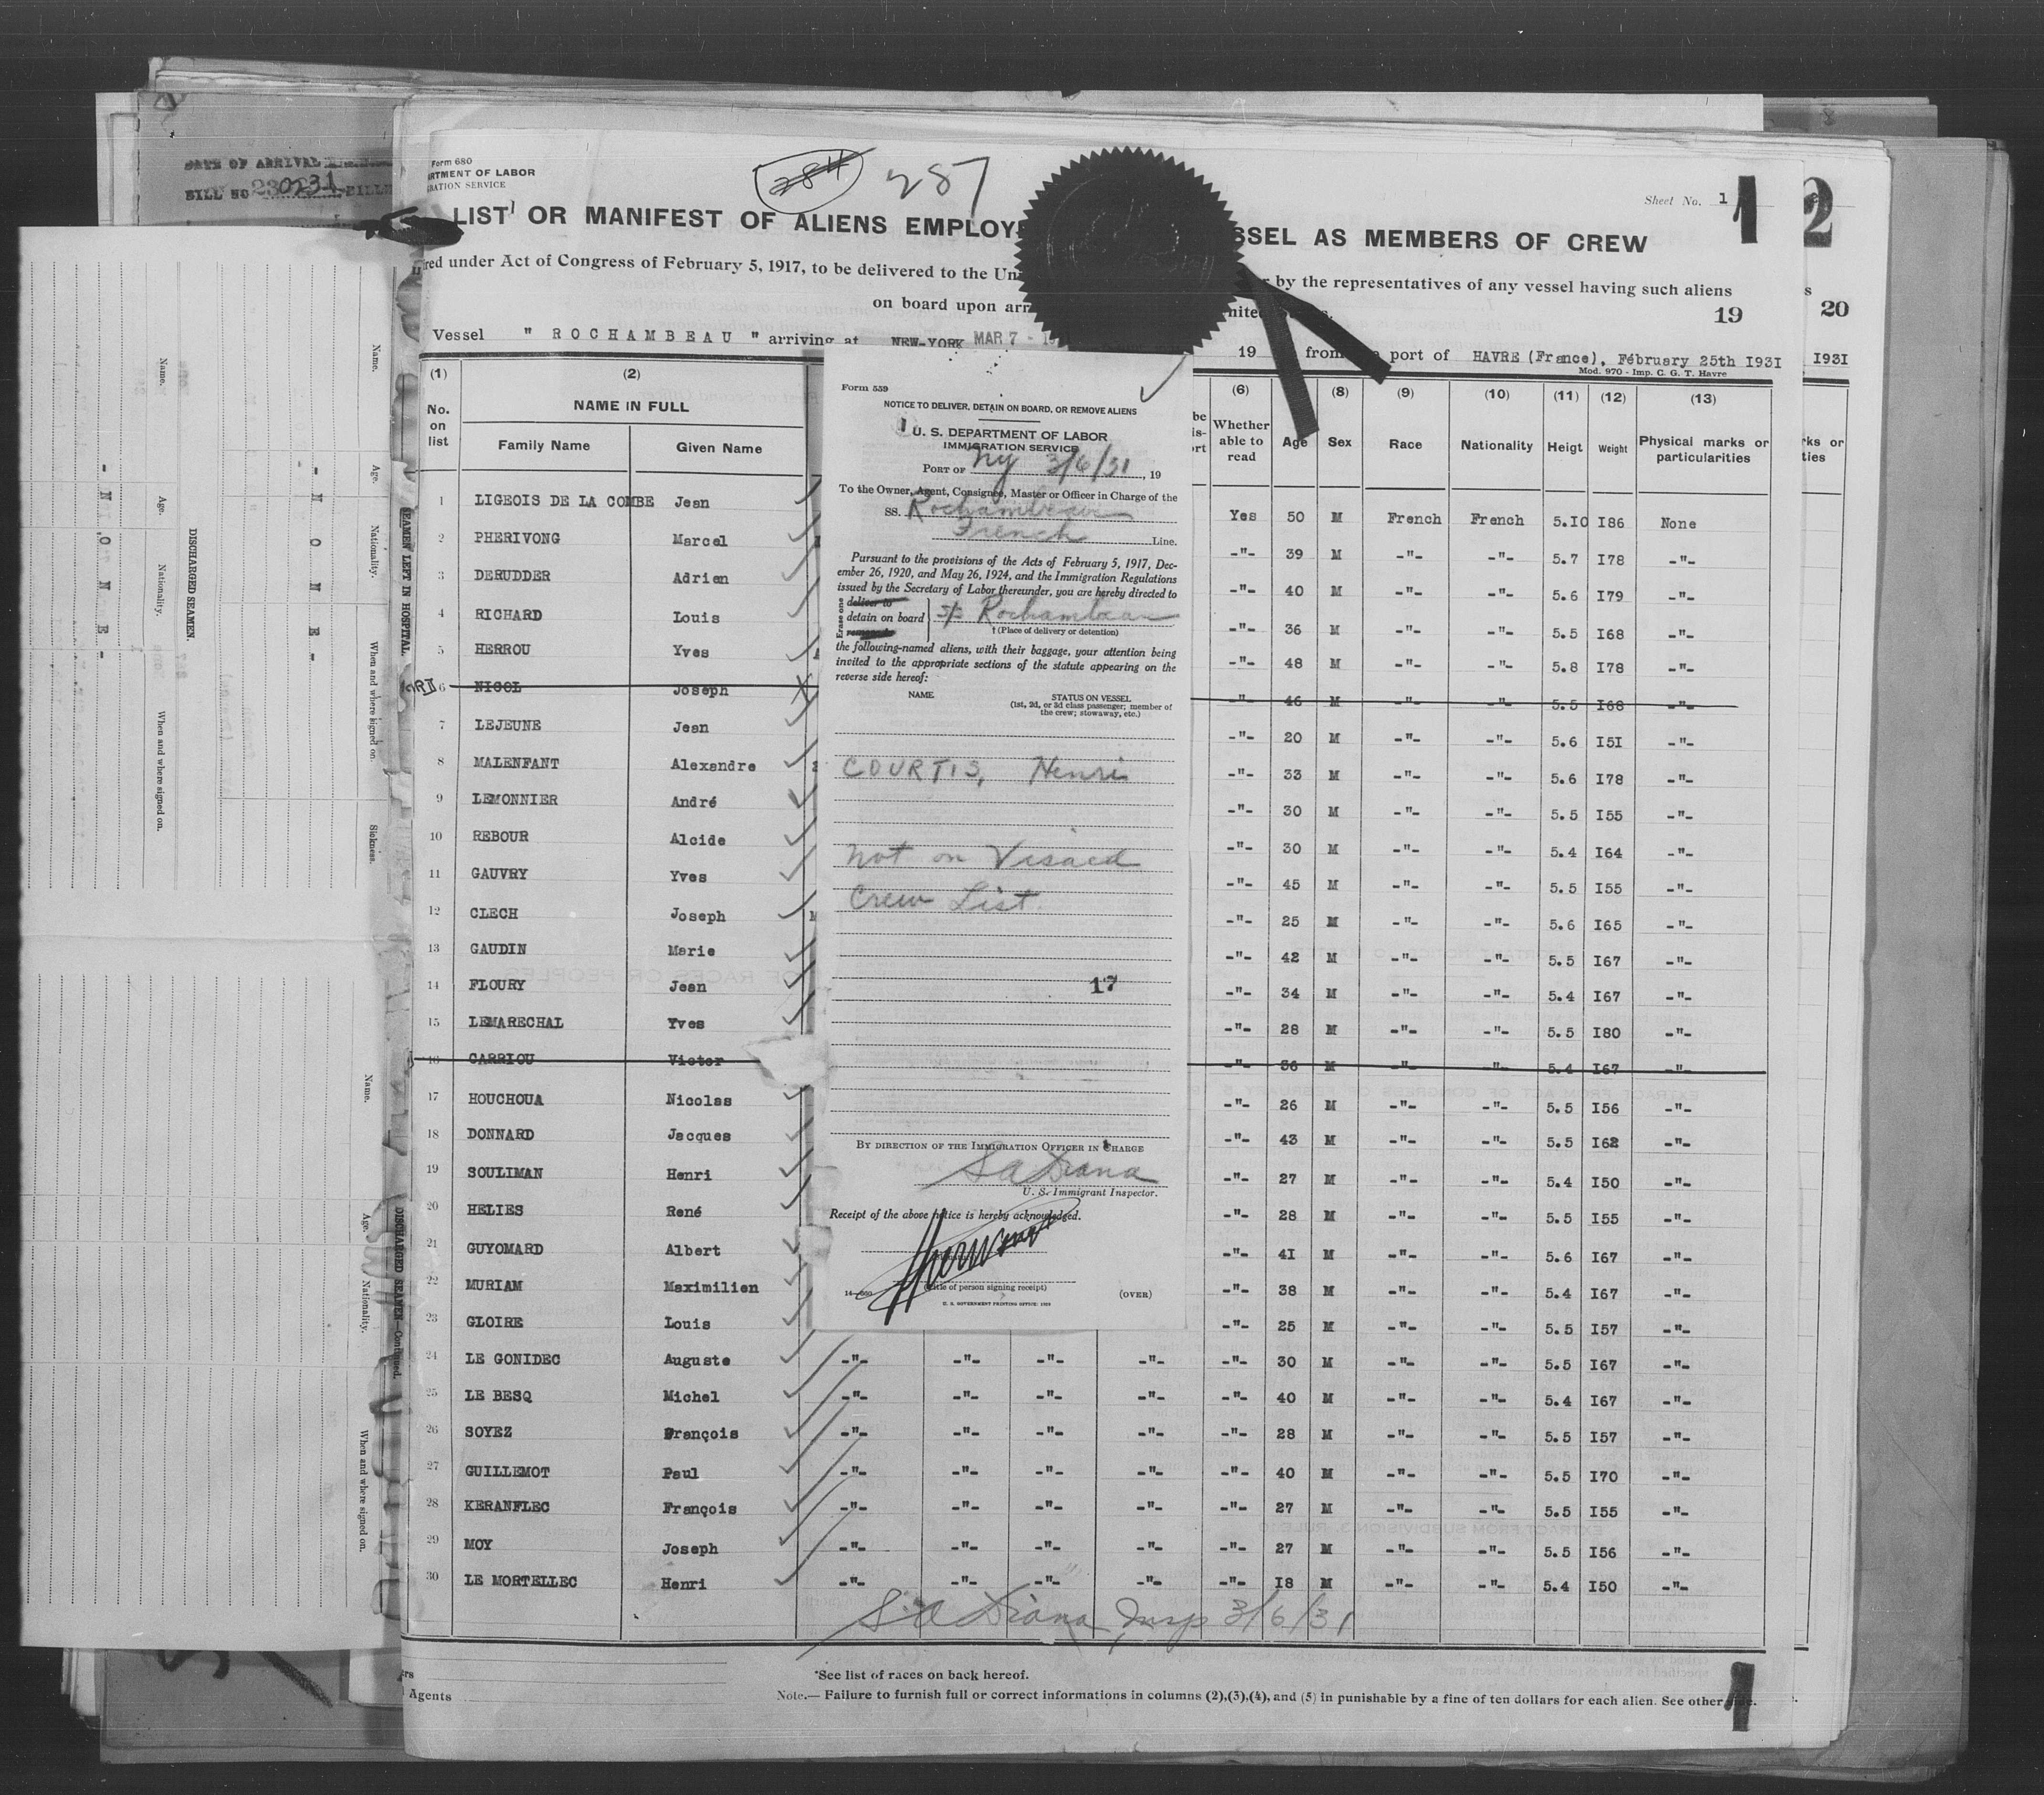 DATE OF ARRIVAL
BILL NO 230231
Form 680
ARTMENT OF LABOR
RATION SERVICE
284
287
Sheet No. 1
1
2
LIST OR MANIFEST OF ALIENS EMPLOY
SSEL AS MEMBERS OF CREW
red under Act of Congress of February 5, 1917, to be delivered to the Un
by the representatives of any vessel having such aliens
on board upon arr
19
20
Vessel " ROCHAMBEAU " arriving at NEW-YORK MAR 7 - 19
19 from port of HAVRE (France), Fébruary 25th 1931
1931
Mod. 970 - Imp. C. G. T. Havre
(1) (2) (6) (8) (9) (10) (11) (12) (13)
No. on list
NAME IN FULL
Family Name Given Name
Whether able to read
Age Sex Race Nationality Heigt Weight Physical marks or particularities
1 LIGEOIS DE LA COMBE Jean Yes 50 M French French 5.10 186 None
2 PHERIVONG Marcel -"- 39 M -"- -"- 5.7 178 -"-
3 DERUDDER Adrien -"- 40 M -"- -"- 5.6 179 -"-
4 RICHARD Louis -"- 36 M -"- -"- 5.5 168 -"-
5 HERROU Yves -"- 48 M -"- -"- 5.8 178 -"-
6 NICOL Joseph -"- 46 M -"- -"- 5.5 168 -"-
7 LEJEUNE Jean -"- 20 M -"- -"- 5.6 151 -"-
8 MALENFANT Alexandre -"- 33 M -"- -"- 5.6 178 -"-
9 LEMONNIER André -"- 30 M -"- -"- 5.5 155 -"-
10 REBOUR Alcide -"- 30 M -"- -"- 5.4 164 -"-
11 GAUVRY Yves -"- 45 M -"- -"- 5.5 155 -"-
12 CLECH Joseph -"- 25 M -"- -"- 5.6 165 -"-
13 GAUDIN Marie -"- 42 M -"- -"- 5.5 167 -"-
14 FLOURY Jean -"- 34 M -"- -"- 5.4 167 -"-
15 LEMARECHAL Yves -"- 28 M -"- -"- 5.5 180 -"-
16 CARRIOU Victor -"- 36 M -"- -"- 5.4 167 -"-
17 HOUCHOUA Nicolas -"- 26 M -"- -"- 5.5 156 -"-
18 DONNARD Jacques -"- 43 M -"- -"- 5.5 162 -"-
19 SOULIMAN Henri -"- 27 M -"- -"- 5.4 150 -"-
20 HELIES René -"- 28 M -"- -"- 5.5 155 -"-
21 GUYOMARD Albert -"- 41 M -"- -"- 5.6 167 -"-
22 MURIAM Maximilien -"- 38 M -"- -"- 5.4 167 -"-
23 GLOIRE Louis -"- 25 M -"- -"- 5.5 157 -"-
24 LE GONIDEC Auguste -"- -"- -"- -"- -"- 30 M -"- -"- 5.5 167 -"-
25 LE BESQ Michel -"- -"- -"- -"- -"- 40 M -"- -"- 5.4 167 -"-
26 SOYEZ François -"- -"- -"- -"- -"- 28 M -"- -"- 5.5 157 -"-
27 GUILLEMOT Paul -"- -"- -"- -"- -"- 40 M -"- -"- 5.5 170 -"-
28 KERANFLEC François -"- -"- -"- -"- -"- 27 M -"- -"- 5.5 155 -"-
29 MOY Joseph -"- -"- -"- -"- -"- 27 M -"- -"- 5.5 156 -"-
30 LE MORTELLEC Henri -"- -"- -"- -"- -"- 18 M -"- -"- 5.4 150 -"-
S A Diana, Insp 3/6/31
*See list of races on back hereof.
Agents
Note.— Failure to furnish full or correct informations in columns (2),(3),(4), and (5) in punishable by a fine of ten dollars for each alien. See other side.
1
Form 559
NOTICE TO DELIVER, DETAIN ON BOARD, OR REMOVE ALIENS
U. S. DEPARTMENT OF LABOR
IMMIGRATION SERVICE
PORT OF NY 3/6/31, 19
To the Owner, Agent, Consignee, Master or Officer in Charge of the
SS. Rochambeau
French Line.
Pursuant to the provisions of the Acts of February 5, 1917, Dec-
ember 26, 1920, and May 26, 1924, and the Immigration Regulations
issued by the Secretary of Labor thereunder, you are hereby directed to
Erase one
deliver to
detain on board
remove to
Rochambeau
†(Place of delivery or detention)
the following-named aliens, with their baggage, your attention being
invited to the appropriate sections of the statute appearing on the
reverse side hereof:
NAME STATUS ON VESSEL
(1st, 2d, or 3d class passenger; member of
the crew; stowaway, etc.)
COURTIS, Henri
Not on Visaed
Crew List.
17
BY DIRECTION OF THE IMMIGRATION OFFICER IN CHARGE
S A Diana
U. S. Immigrant Inspector.
Receipt of the above notice is hereby acknowledged.
(Title of person signing receipt)
U. S. GOVERNMENT PRINTING OFFICE: 1929
(OVER)
SEAMEN LEFT IN HOSPITAL
Name. Age. Nationality. When and where signed on. Sickness.
- N O N E -
DISCHARGED SEAMEN.
Name. Age. Nationality. When and where signed on.
- N O N E -
DISCHARGED SEAMEN—Continued.
Name. Age. Nationality. When and where signed on.